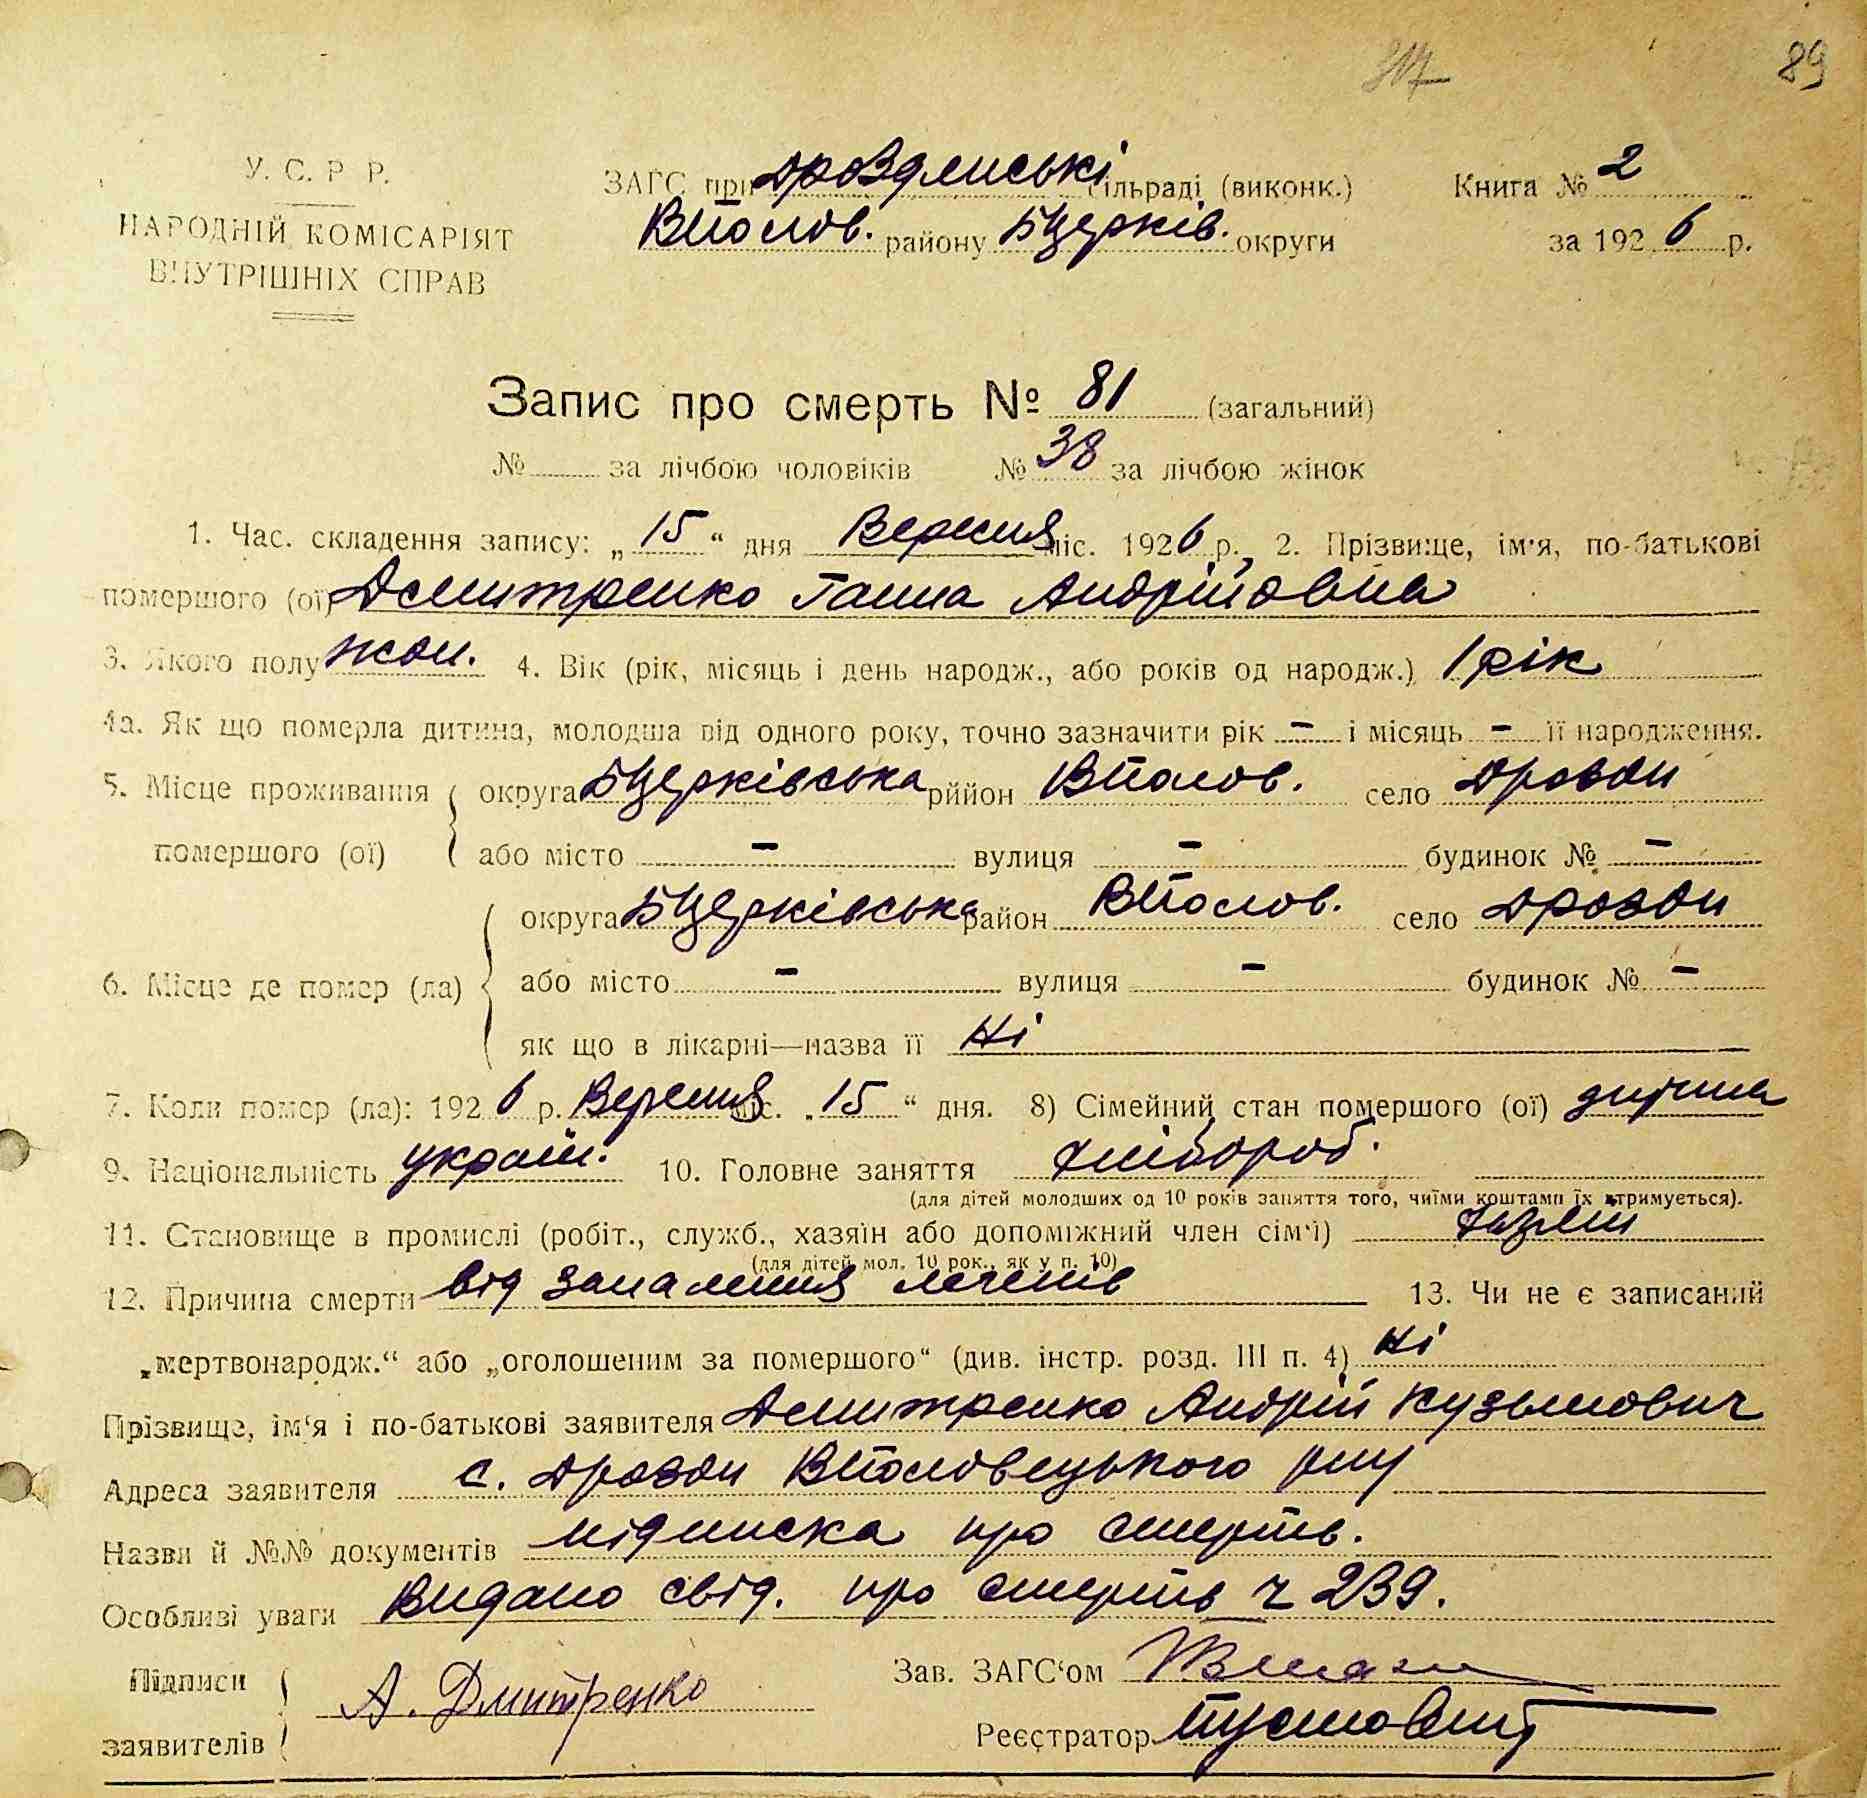 89
У. С. Р. Р.
НАРОДНІЙ КОМІСАРІЯТ
ВНУТРІШНІХ СПРАВ
ЗАГС при Дрозденські сільраді (виконк.)
ВПолов. району БЦерків. округи
Книга № 2
за 1926 р.
Запис про смерть № 81 (загальний)
№ за лічбою чоловіків № 38 за лічбою жінок
1. Час. складення запису: „15“ дня Вересня міс. 1926 р. 2. Прізвище, ім'я, по-батькові
помершого (ої) Дмитренко Ганна Андріївна
3. Якого полу жон. 4. Вік (рік, місяць і день народж., або років од народж.) 1 рік
4а. Як що померла дитина, молодша від одного року, точно зазначити рік – і місяць – її народження.
5. Місце проживання помершого (ої) округа БЦерківська рййон ВПолов. село Дрозди
або місто – вулиця – будинок № –
6. Місце де помер (ла) округа БЦерківська район ВПолов. село Дрозди
або місто – вулиця – будинок № –
як що в лікарні—назва її Ні
7. Коли помер (ла): 1926 р. Вересня міс. „15“ дня. 8) Сімейний стан помершого (ої) дитина
9. Національність україн. 10. Головне заняття хлібороб.
(для дітей молодших од 10 років заняття того, чиїми коштами їх втримується).
11. Становище в промислі (робіт., служб., хазяїн або допоміжний член сім'ї) хазяїн
(для дітей мол. 10 рок., як у п. 10)
12. Причина смерти від запалення легенів 13. Чи не є записаний
„мертвонародж.“ або „оголошеним за помершого“ (див. інстр. розд. III п. 4) Ні
Прізвище, ім'я і по-батькові заявителя Дмитренко Андрій Кузьмович
Адреса заявителя с. Дрозди ВПоловецького р-ну
Назви й №№ документів підписка про смерть.
Особливі уваги Видано свід. про смерть ч 239.
Підписи заявителів А. Дмитренко
Зав. ЗАГС'ом
Реєстратор